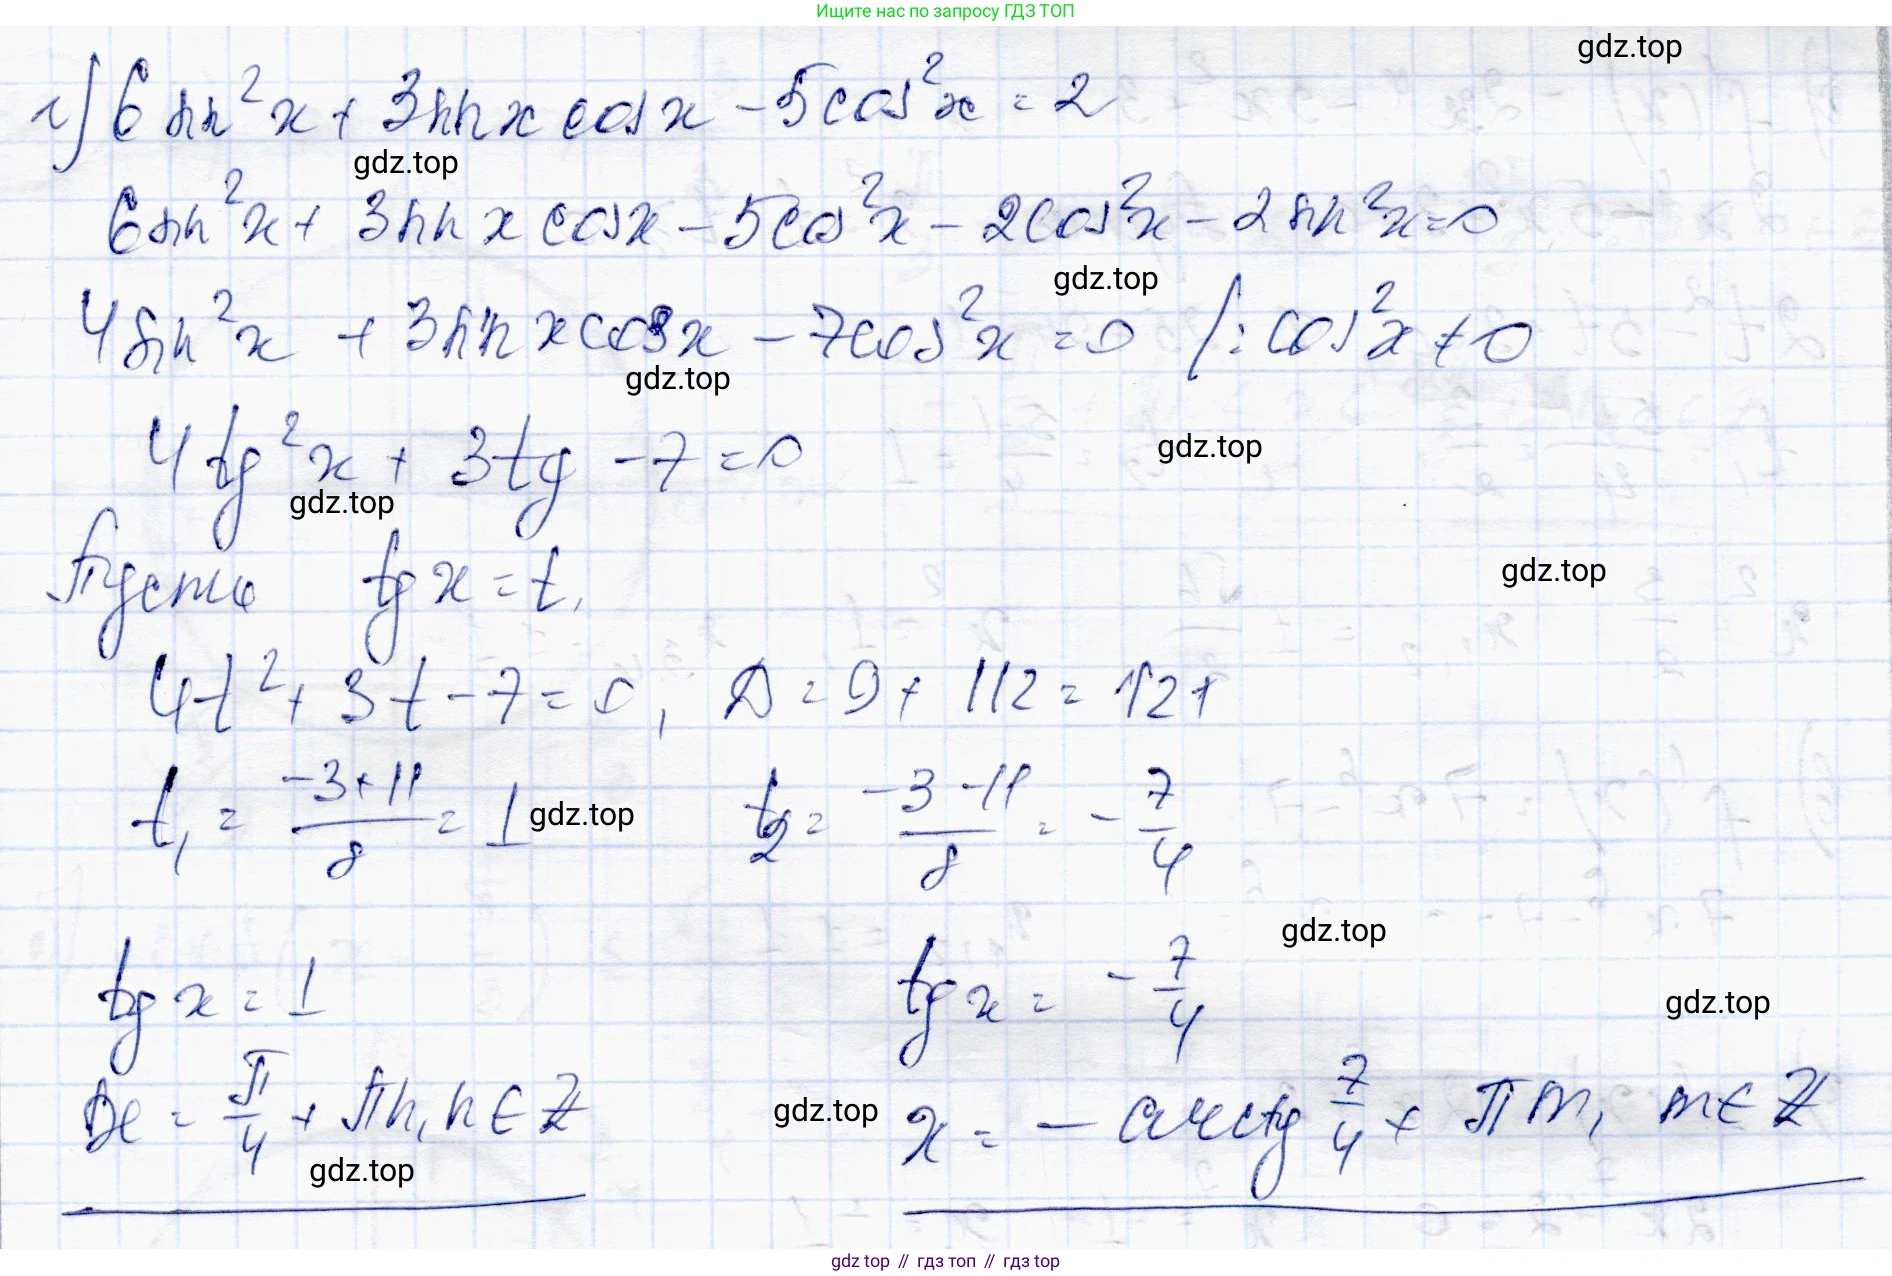 Ищите нас по запросу ГДЗ ТОП
gdz.top
г) 6 sin²x + 3 sin x cos x - 5 cos²x = 2
gdz.top
6 sin²x + 3 sin x cos x - 5 cos²x - 2 cos²x - 2 sin²x = 0
gdz.top
4 sin²x + 3 sin x cos x - 7 cos²x = 0 /: cos²x ≠ 0
gdz.top
4 tg²x + 3 tg - 7 = 0
gdz.top
gdz.top
Пусть tg x = t,
gdz.top
4t² + 3t - 7 = 0, D = 9 + 112 = 121
t₁ = (-3+11)/8 = 1 gdz.top t₂ = (-3-11)/8 = -7/4
gdz.top
tg x = 1 tg x = -7/4
gdz.top
x = π/4 + πn, n ∈ Z gdz.top x = - arctg 7/4 + πm, m ∈ Z
gdz.top
gdz top // гдз топ // гдз top